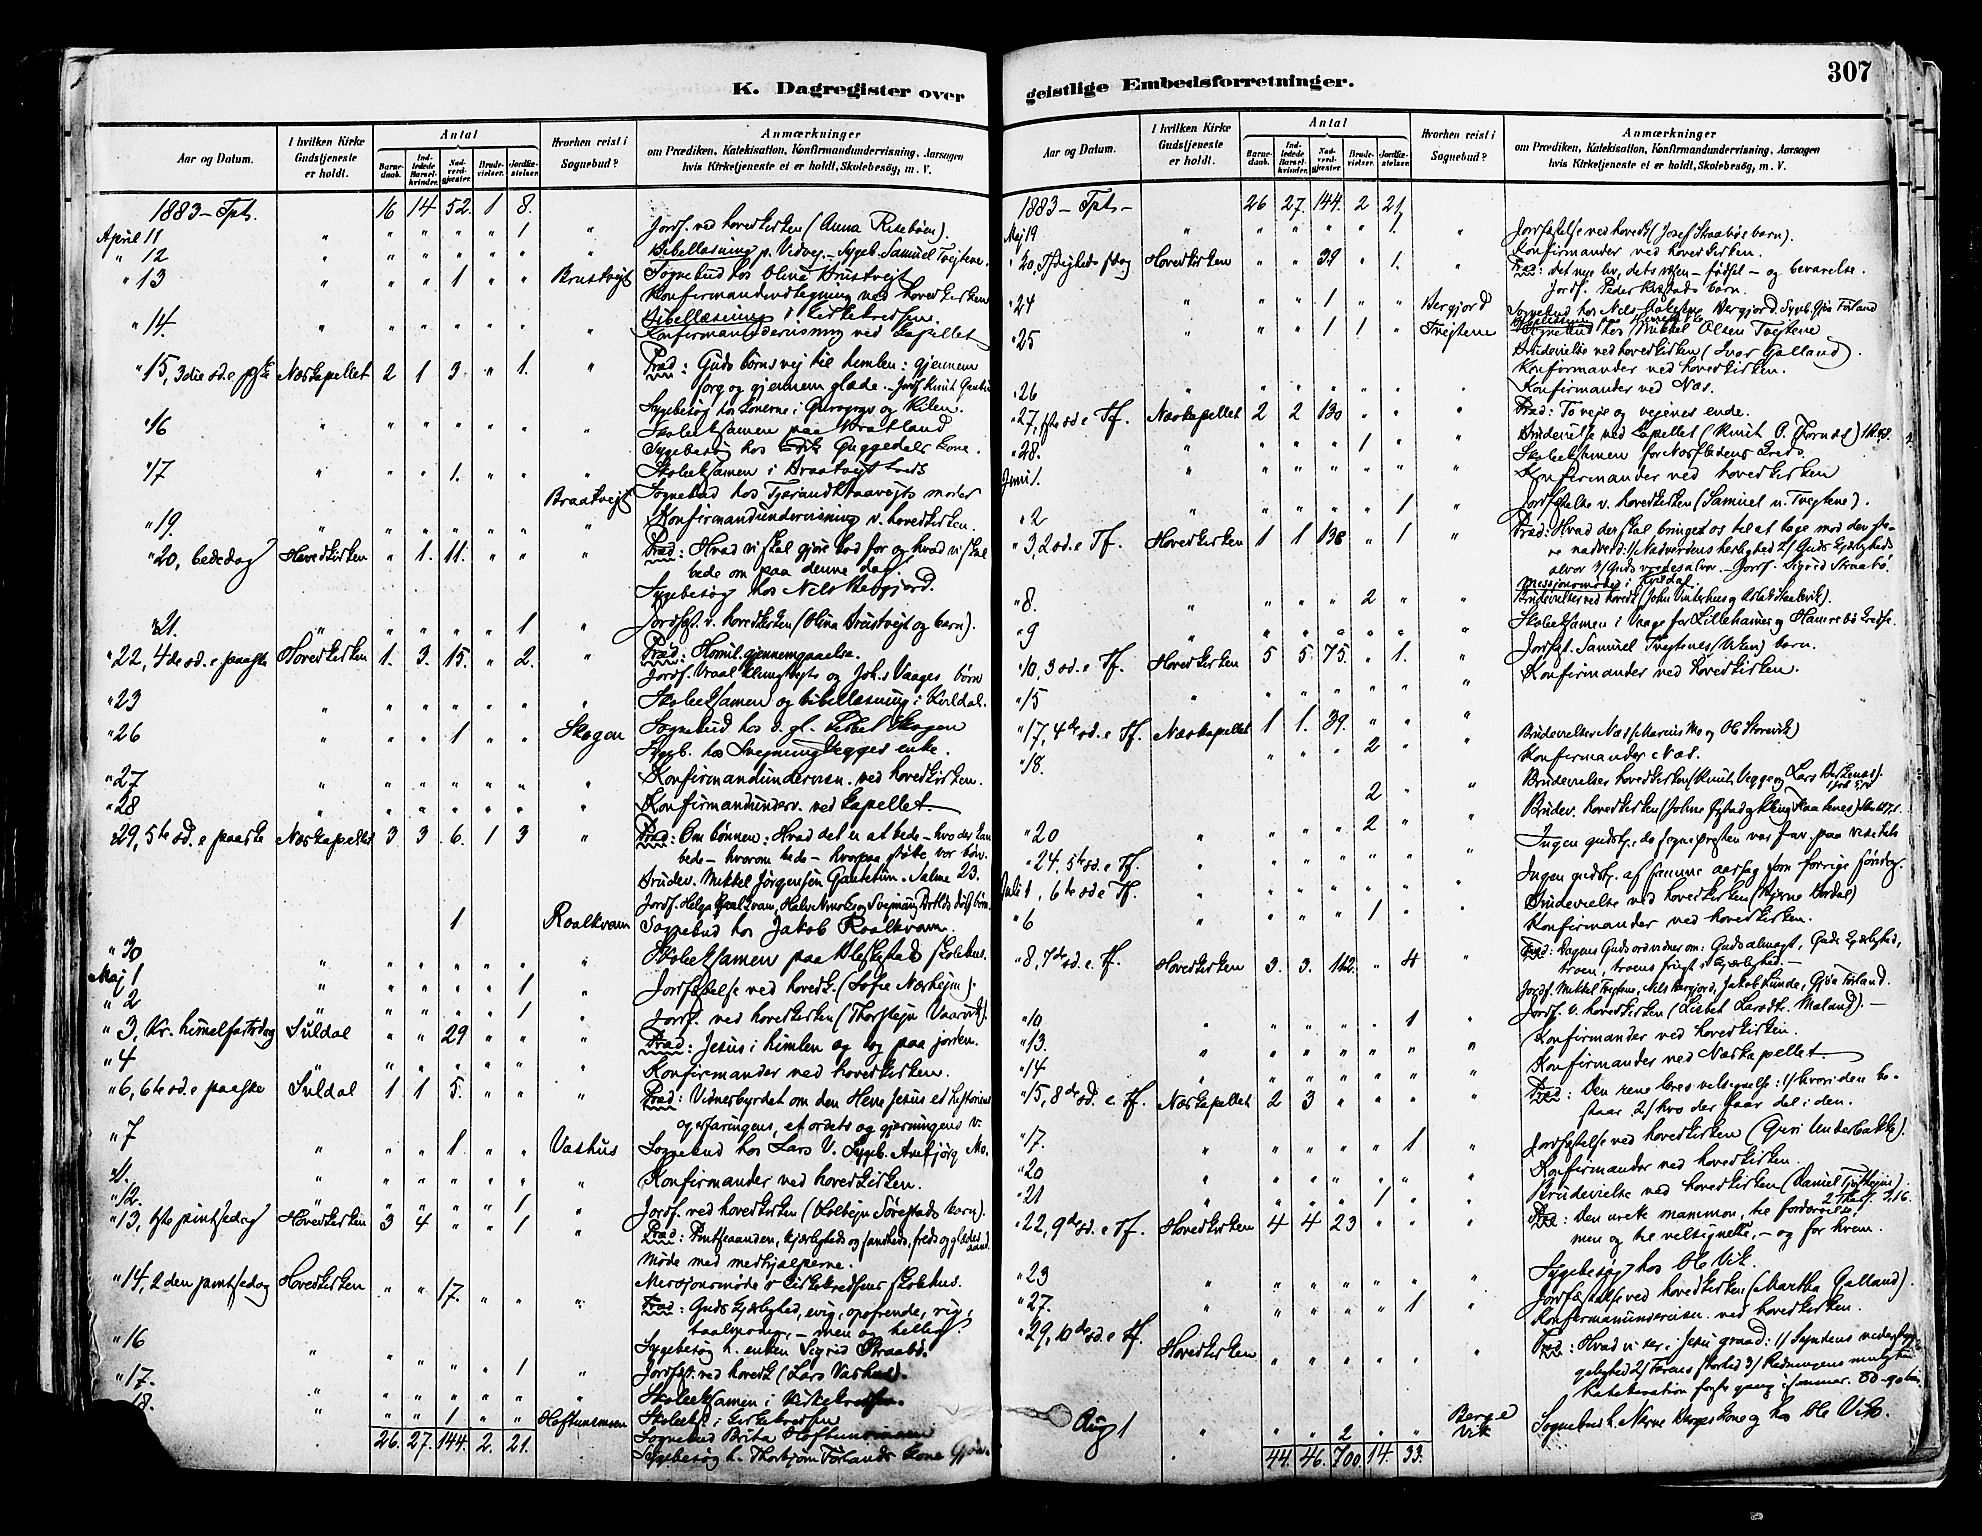 307
K. Dagregister over
geistlige Embedsforretninger.
Aar og Datum.
I hvilken Kirke Gudstjeneste er holdt.
Antal
Barnedaab.
Indledede Barselkvinder.
Nadverdgjæster.
Brudevielser.
Jordfæstelser.
Hvorhen reist i Sognebud?
Anmærkninger
om Prædiken, Katekisation, Konfirmandundervisning, Aarsagen
hvis Kirketjeneste ei er holdt, Skolebesög, m. V.
1883 - Tpt. 16 14 52. 1 8.
April 11 " " " " " 1 " Jordf. ved hovedkirken (Anna Risebøen).
" 12 " " " " " " Bibellæsning p. Vidvej. - Sygeb. Samuel Tvejtene.
" 13 " " " 1 " " Brustvejt Sognebud hos Olina Brustvejt
Konfirmandudlægning ved hovedkirken
" 14. " " " " " " " Bibellæsning i Kirkekredsen.
Konfirmandundervisning ved Kapellet
" 15, 3die sd. e. pske Næskapellet 2 1 3. " 1. " Præd: Guds børns vej til himlen: gjennem
sorg og gjennem glæde. - Jordf. Knut
" 16 Sygebesøg hos konerne i
Skoleeksamen paa Bratland
Sygebesøg hos Erik Guggedals kone.
" 17 " " " 1. " " Skoleeksamen i Braatvejt kreds
Braatvejt Sognebud hos
" 19. " " " " " " " Konfirmandundervisning v. hovedkirken.
" 20, bededag Hovedkirken " 1. 11. " " " Præd: Hvad vi skal gjøre bod for og hvad vi skal
bede om paa denne dag.
Sygebesøg hos Nils Bergjord.
" 21. " " " " " 1 " Jordfst. v. hovedkirken (Olina Brustvejt og barn).
" 22, 4de sd. e. paaske Hovedkirken 1. 3. 15. " 2. " Præd: Homil. gjennemgaaelse.
Jordf. Vraal Klungtvejts og Joh.s Vaages børn
" 23 " " " " " " " Skoleeksamen og bibellæsning i Kvildal.
" 26 " " " 1 " " Skogen Sognebud hos d. gl. Lisbet Skogen
Sygb. hos Svejnung Vegges enke.
" 27 " " " " " " " Konfirmandundervisn. ved hovedkirken.
" 28 " " " " " " " Konfirmandunderv. ved kapellet
" 29, 5te sd. e. paaske Næskapellet 3 3 6. 1 3 " Præd: Om bønnen: Hvad det er at bede - hvo der kan
bede - hvorom bede - hvorpaa støtte vor bøn.
Brudev. Mikkel Jørgensen Gautetun. Salme 23.
1 Roalkvam Sognebud hos Jakob Roalkvam.
" 30 " " " " " " " Skoleeksamen paa Bleskestads skolehus.
Maj 1 " " " " " 1 " Jordfæstelse ved hovedk. (Sofie Nærhejm).
" 2 " " " " " 1 " Jordf. ved hovedkirken (Thorstejn Vaarvik).
" 3, Kr. himelfartsdag Suldal " " 29 " " " Præd: Jesus i himlen og dog paa jorden.
" 4 " " " " " " " Konfirmander ved hovedkirken.
" 6, 6te sd. e. paaske Suldal 1 1 5. " " " Præd: Vidnesbyrdet om den Herre Jesus et historiens
og erfaringens, et ordets og gjerningens v.
" 7 " " " 1 " " Vashus Sognebud hos Lars V. Sygeb. Anbjørg Mo.
" 11. " " " " " " " Konfirmander ved hovedkirken.
" 12. " " " " " 1 " Jordf. ved hovedkirken (Kolbejn Sørestads barn).
" 13, 1ste pintsedag Hovedkirken 3 4 " " 1 " Præd: Pintseaanden, kjærligheds og sandheds, freds og glædes aand.
Møde med medhjælperne.
" 14, 2den pintsedag Hovedkirken " " 17. " " " Missjonsmøde v. Kirkekredsens skolehus.
Præd: Guds kjærlighed, evig, opofrende, rig,
taalmodig, - men og hellig.
" 16 " " " " " " Sygebesøg h. enken Sigrid Straabø.
" 17. " " " " " 1 Jordfst. ved hovedk (Lars Vashus).
18. " " " " " " Skoleeksamen i Kirkekredsen.
" " 1 " " Hoftunsmoen Skoleeks. i Kirkekredsen
Sognebud Brita Hoftunsmoen
26. 27. 144. 2. 21. Sygebesøg h. Thorbjørn Førlands kone Gjøa.
Aar og Datum.
I hvilken Kirke Gudstjeneste er holdt.
Antal
Barnedaab.
Indledede Barselkvinder.
Nadverdgjæster.
Brudevielser.
Jordfæstelser.
Hvorhen reist i Sognebud?
Anmærkninger
om Prædiken, Katekisation, Konfirmandundervisning, Aarsagen
hvis Kirketjeneste ei er holdt, Skolebesög, m. V.
1883 - Tpt - 26 27. 144. 2 21
Maj 19 " " " " " 1. " Jordfæstelse ved hovedk (Josef Straabøs barn).
Konfirmander ved hovedkirken.
" 20, Trefigheds sdag Hovedkirken " " 39. " 1. " Præd: det nye liv, dets væsen - fødsel - og bevarelse.
Jordf. Peder barn.
" 24 " " " 1 " " Bergjord Sognebud hos Nils Bergjord. Sygb. Gjøa Førland
" 25 " " 1 1 " Tvejtene Sognebud hos Mikkel Olsen Tvejtene
Brudevielse ved hovedkirken (Ivar Galland).
Konfirmander ved hovedkirken.
" 26 " " " " " " Konfirmander ved Næs.
" 27, 1ste sd. e. Tf. Næskapellet 2 2 130 " " " Præd: To veje og vejenes ende.
" 28. " " " " 1 " " Brudevielse ved kapellet (Knut O. Fornes)
Skoleeksamen for Næsflatens kreds.
Juni 1. " " " " " " " Konfirmander ved hovedkirken
" 2 " " " " " 1 " Jordfæstelse v. hovedkirken (Samuel n. Tvejtene).
" 3, 2 sd. e. Tf. Hovedkirken 1 1 138 " 1 " Præd: Hvad der skal bringe os til at tage mod den store
nadverd: 1/ Nadverdens herlighed 2/ Guds kjærligheds
alvor 3/ Guds vredes alvor. - Jordf. Sigrid Straabø.
Missjonsmøde i Kvildal.
" 8. " " " " 2 " " Brudevielser ved hovedk.
" 9 " " " " " " " Skoleeksamen i Vaage for Lillehamer og Hamrebø kredse.
" 10, 3 sd. e. Tf. Hovedkirken 5 5 75. " 1. " Jordfst. Samuel Tvejtenes (Viken) barn.
" 15 " " " " " " " Konfirmander ved hovedkirken.
" 17, 4de sd. e. Tf. Næskapellet 1 1. 39. " " " Brudevielser Næs (Marcus Mo og Ole Storevik)
" 18. " " " 2 " " Konfirmander Næs.
2 " " Brudevielser hovedkirken (Knut Vegge og Lars
" 20 " " " " 2 " " Brudev. hovedkirken
" 24. 5te sd. e. Tf. " " " " " " Ingen gudstj., da sognepresten var frav. paa visitats
Juli 1, 6te sd. e. Tf. " " " " " " Ingen gudstj. af samme aarsag som forrige søndag.
" 6 " " " " 1 " " Brudevielse ved hovedkirken
Konfirmander ved hovedkirken.
" 8, 7de sd. e. Tf. Hovedkirken 3. 3. 142. " 4 Præd: Dagens Guds ord vidner om: Guds almagt, Guds kjærlighed,
troen, troens frugt: kjærlighed. -
Jordf. Mikkel Tvejtene, Nils Bergjord, Jakob Kunde, Gjøa Førland.
" 10 " " " " " 1 " Jordf. v. hovedkirken (Lisbet Larsdtr. Mæland). -
" 13. " " " " " " " Konfirmander ved hovedkirken.
" 14 " " " " " " " Konfirmander ved Næskapellet
" 15, 8de sd. e. Tf. Næskapellet 2 3 " " " " Præd: Den rene læres velsignelse: 1/ hvori den be-
staar 2/ hvo der faar del i den.
" 17. " " " " " 1 " Jordfæstelse ved hovedkirken (Guri Underbakke).
" 20 " " " " " " " Konfirmander ved hovedkirken.
" 21 " " " " 1 " " Brudevielse ved hovedkirken
" 22, 9de sd. e. Tf. Hovedkirken 4 4 23 " " " Præd: Den urette mammon, til fordervelse
men og til velsignelse, - og for hvem.
" 23 " " " " " " " Sygebesøg hos Ole Vik.
" 27. " " " " " 1 " Jordfæstelse ved hovedkirken (Martha Galland).
Konfirmandundervisn. ved hovedkirken.
" 29, 10de sd. e. Tf. Hovedkirken " " " " " " Præd: Hvad vi ser i Jesu graad: 1/ Syndens
2/ Farens storhed 3/ Redningens mulighed
Katekisation første gang i sommer. 80-90 børn.
Aug 1 " " " 2 " " Berge
Vik Sognebud h. kone og hos Ole Vik.
44. 46. 700. 14. 33.